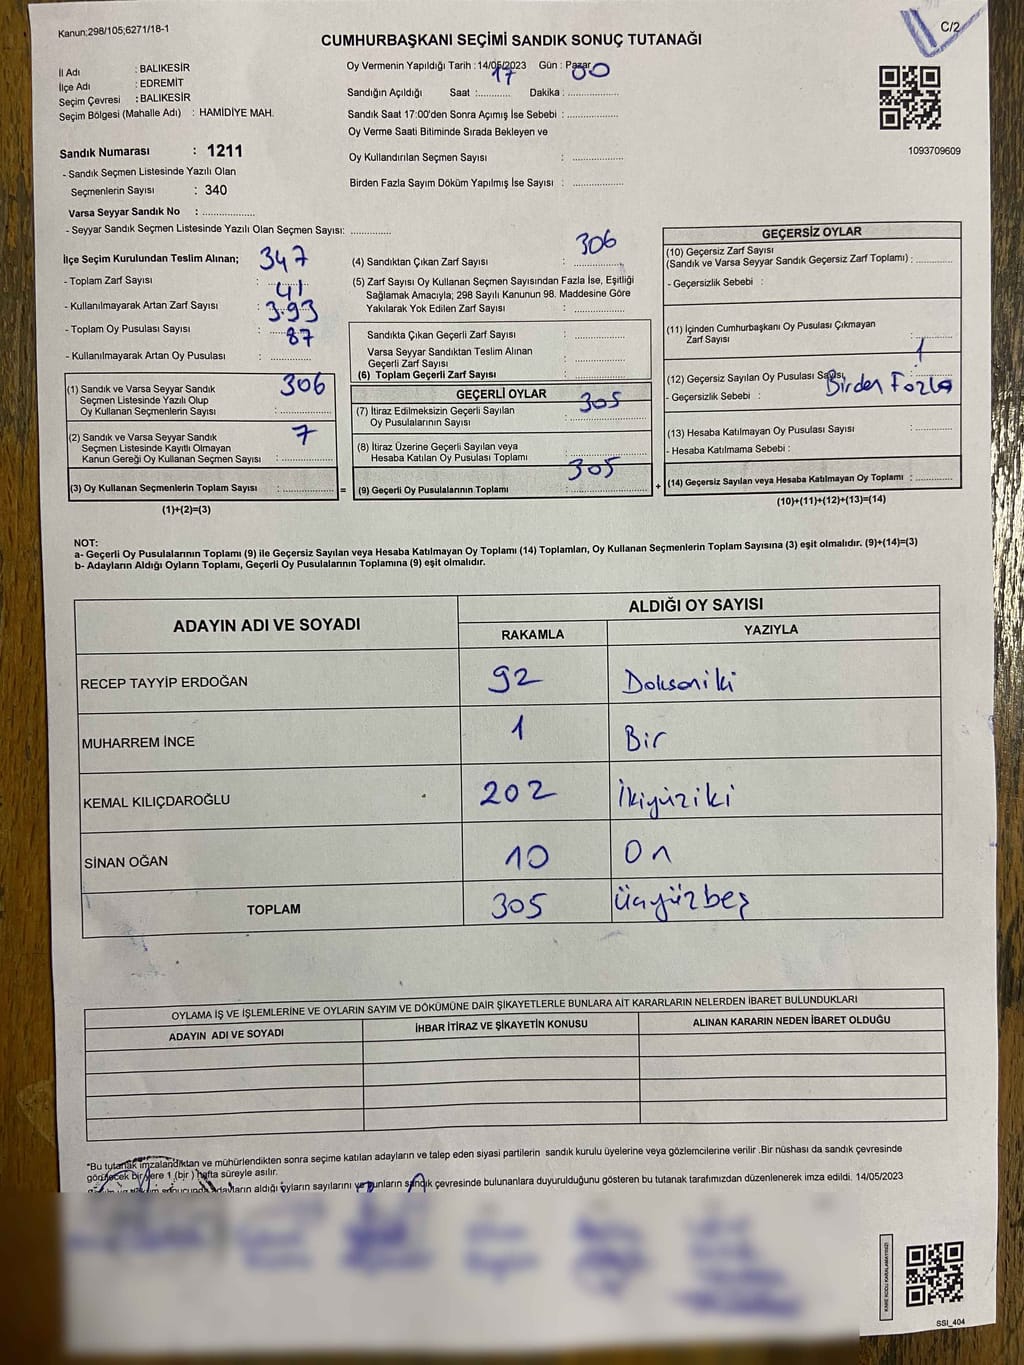 Kanun:298/105;6271/18-1
C/2
CUMHURBAŞKANI SEÇİMİ SANDIK SONUÇ TUTANAĞI
İl Adı : BALIKESİR
İlçe Adı : EDREMİT
Seçim Çevresi : BALIKESİR
Seçim Bölgesi (Mahalle Adı) : HAMİDİYE MAH.
Sandık Numarası : 1211
- Sandık Seçmen Listesinde Yazılı Olan
Seçmenlerin Sayısı : 340
Varsa Seyyar Sandık No : ..................
- Seyyar Sandık Seçmen Listesinde Yazılı Olan Seçmen Sayısı: ..............
Oy Vermenin Yapıldığı Tarih : 14/05/2023 Gün : Pazar
Sandığın Açıldığı Saat :........... Dakika : ..................
17 00
Sandık Saat 17:00'den Sonra Açımış İse Sebebi : ..................
Oy Verme Saati Bitiminde Sırada Bekleyen ve
Oy Kullandırılan Seçmen Sayısı : ..................
Birden Fazla Sayım Döküm Yapılmış İse Sayısı : ..................
1093709609
İlçe Seçim Kurulundan Teslim Alınan;
- Toplam Zarf Sayısı : 347
- Kullanılmayarak Artan Zarf Sayısı : 41
- Toplam Oy Pusulası Sayısı : 393
- Kullanılmayarak Artan Oy Pusulası : 87
(1) Sandık ve Varsa Seyyar Sandık
Seçmen Listesinde Yazılı Olup
Oy Kullanan Seçmenlerin Sayısı : 306
(2) Sandık ve Varsa Seyyar Sandık
Seçmen Listesinde Kayıtlı Olmayan
Kanun Gereği Oy Kullanan Seçmen Sayısı : 7
(3) Oy Kullanan Seçmenlerin Toplam Sayısı : ..................
(1)+(2)=(3)
=
(4) Sandıktan Çıkan Zarf Sayısı : 306
(5) Zarf Sayısı Oy Kullanan Seçmen Sayısından Fazla İse, Eşitliği
Sağlamak Amacıyla; 298 Sayılı Kanunun 98. Maddesine Göre
Yakılarak Yok Edilen Zarf Sayısı : ..................
Sandıkta Çıkan Geçerli Zarf Sayısı : ..................
Varsa Seyyar Sandıktan Teslim Alınan
Geçerli Zarf Sayısı : ..................
(6) Toplam Geçerli Zarf Sayısı : ..................
GEÇERLİ OYLAR
(7) İtiraz Edilmeksizin Geçerli Sayılan
Oy Pusulalarının Sayısı : 305
(8) İtiraz Üzerine Geçerli Sayılan veya
Hesaba Katılan Oy Pusulası Toplamı : ..................
(9) Geçerli Oy Pusulalarının Toplamı : 305
+
GEÇERSİZ OYLAR
(10) Geçersiz Zarf Sayısı
(Sandık ve Varsa Seyyar Sandık Geçersiz Zarf Toplamı) : ..............
- Geçersizlik Sebebi :
(11) İçinden Cumhurbaşkanı Oy Pusulası Çıkmayan
Zarf Sayısı : ..............
(12) Geçersiz Sayılan Oy Pusulası Sayısı 1
- Geçersizlik Sebebi : Birden Fazla
(13) Hesaba Katılmayan Oy Pusulası Sayısı : ..............
- Hesaba Katılmama Sebebi :
(14) Geçersiz Sayılan veya Hesaba Katılmayan Oy Toplamı : ..............
(10)+(11)+(12)+(13)=(14)
NOT:
a- Geçerli Oy Pusulalarının Toplamı (9) ile Geçersiz Sayılan veya Hesaba Katılmayan Oy Toplamı (14) Toplamları, Oy Kullanan Seçmenlerin Toplam Sayısına (3) eşit olmalıdır. (9)+(14)=(3)
b- Adayların Aldığı Oyların Toplamı, Geçerli Oy Pusulalarının Toplamına (9) eşit olmalıdır.
ADAYIN ADI VE SOYADI
ALDIĞI OY SAYISI
RAKAMLA YAZIYLA
RECEP TAYYİP ERDOĞAN 92 Doksaniki
MUHARREM İNCE 1 Bir
KEMAL KILIÇDAROĞLU 202 İkiyüziki
SİNAN OĞAN 10 On
TOPLAM 305 Üçyüzbeş
OYLAMA İŞ VE İŞLEMLERİNE VE OYLARIN SAYIM VE DÖKÜMÜNE DAİR ŞİKAYETLERLE BUNLARA AİT KARARLARIN NELERDEN İBARET BULUNDUKLARI
ADAYIN ADI VE SOYADI İHBAR İTİRAZ VE ŞİKAYETİN KONUSU ALINAN KARARIN NEDEN İBARET OLDUĞU
*Bu tutanak imzalandıktan ve mühürlendikten sonra seçime katılan adayların ve talep eden siyasi partilerin sandık kurulu üyelerine veya gözlemcilerine verilir .Bir nüshası da sandık çevresinde
görülecek bir yere 1 (bir ) hafta süreyle asılır.
adayların aldığı oyların sayılarını ve bunların sandık çevresinde bulunanlara duyurulduğunu gösteren bu tutanak tarafımızdan düzenlenerek imza edildi. 14/05/2023
KARE KODU KARALAMAYINIZ!
SSI_404